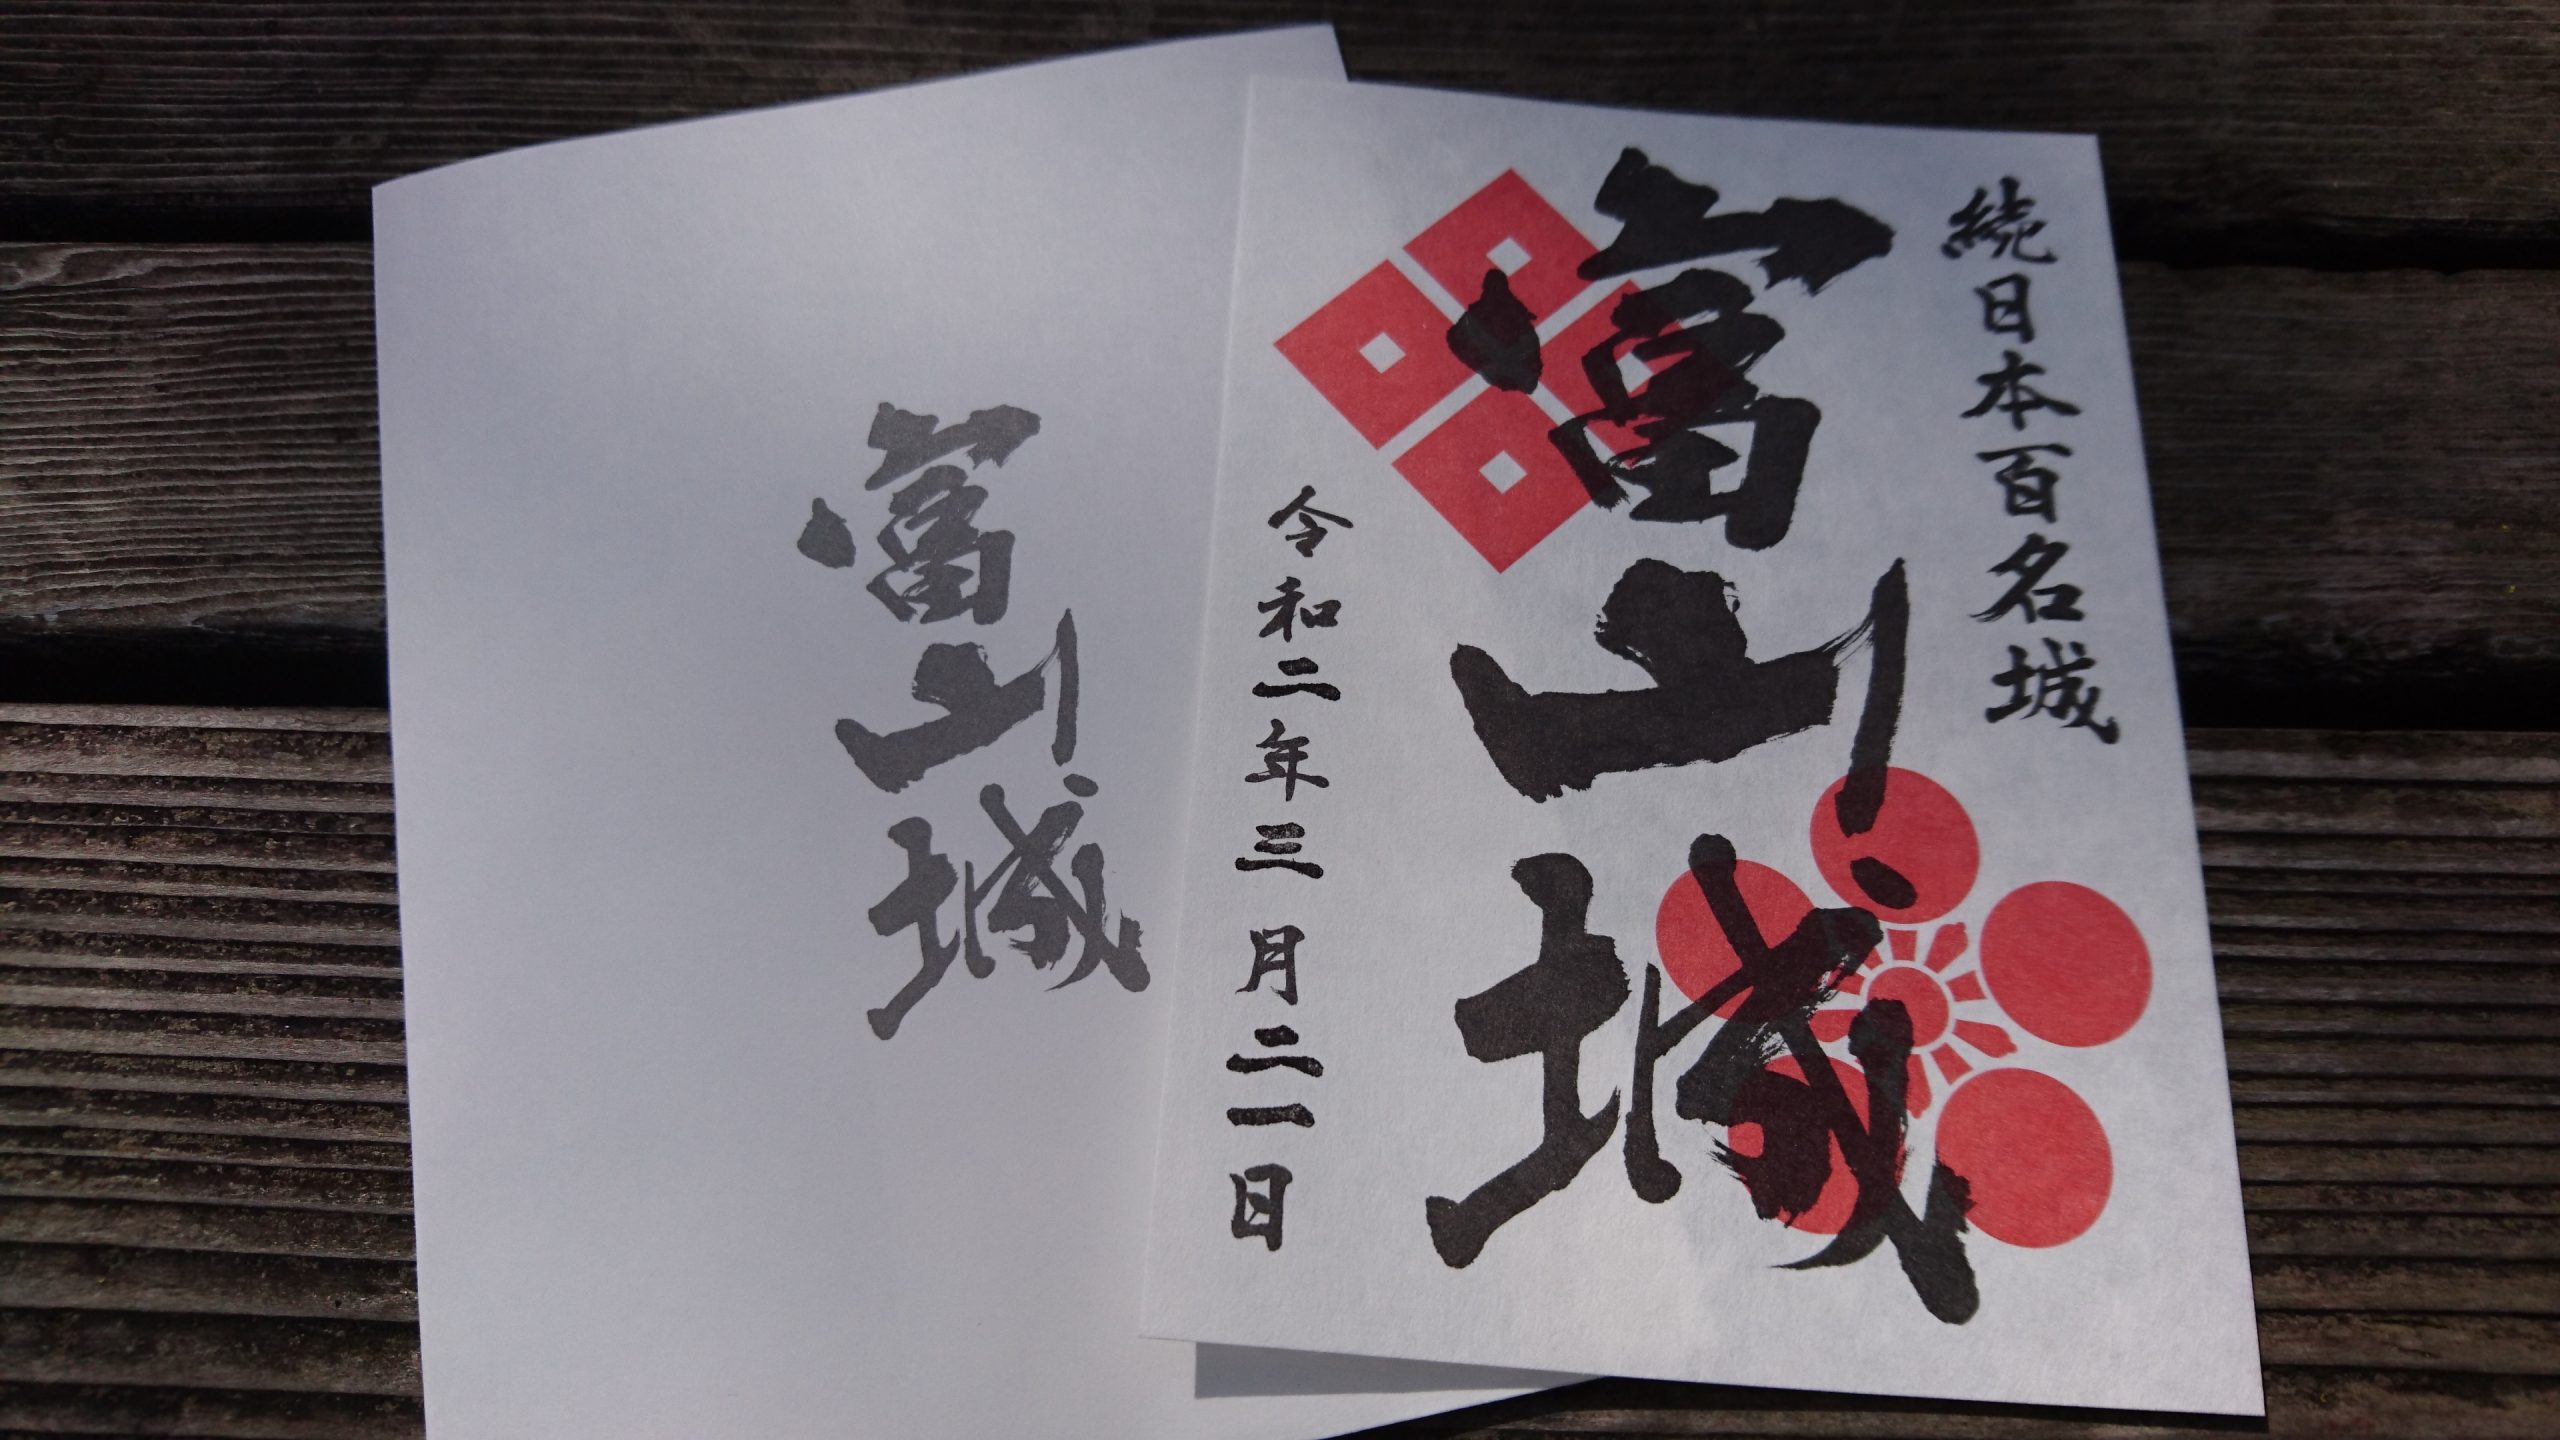 続日本百名城
富山城
令和二年三月二一日
富山城